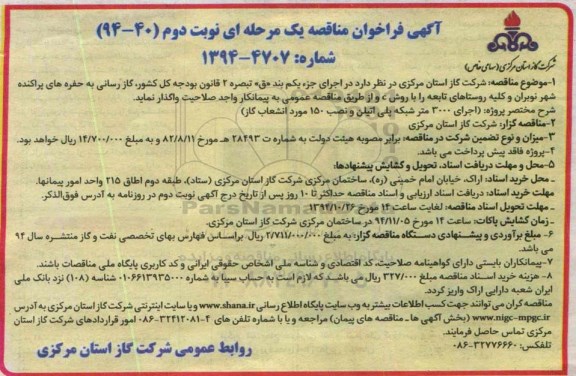 آگهی فراخوان مناقصه یک مرحله ای نوبت دوم (۴۰-۹۴)
شماره: ۴۷۰۷-۱۳۹۴
شرکت گاز استان مرکزی (سهامی خاص)
۱-موضوع مناقصه: شرکت گاز استان مرکزی در نظر دارد در اجرای جزء یکم بند «ق» تبصره ۲ قانون بودجه کل کشور، گاز رسانی به حفره های پراکنده
شهر نوبران و کلیه روستاهای تابعه را با روش c و از طریق مناقصه عمومی به پیمانکار واجد صلاحیت واگذار نماید.
شرح مختصر پروژه: (اجرای ۳۰۰۰ متر شبکه پلی اتیلن و نصب ۱۵۰ مورد انشعاب گاز)
۲-مناقصه گزار: شرکت گاز استان مرکزی
۳-میزان و نوع تضمین شرکت در مناقصه: برابر مصوبه هیئت دولت به شماره ت ۲۸۴۹۳ هـ مورخ ۸۲/۸/۱۱ و به مبلغ ۱۴/۷۰۰/۰۰۰ ریال خواهد بود.
۴-پروژه فاقد پیش پرداخت می باشد.
۵-محل و مهلت دریافت اسناد، تحویل و گشایش پیشنهادها:
ـ محل خرید اسناد: اراک، خیابان امام خمینی (ره)، ساختمان مرکزی شرکت گاز استان مرکزی (ستاد)، طبقه دوم اطاق ۲۱۵ واحد امور پیمانها.
مهلت خرید اسناد: دریافت اسناد ارزیابی و اسناد مناقصه حداکثر تا ۱۰ روز پس از تاریخ درج آگهی نوبت دوم در روزنامه به آدرس فوق الذکر.
ـ مهلت تحویل اسناد مناقصه: لغایت ساعت ۱۴ مورخ ۱۳۹۴/۱۰/۲۶
ـ زمان گشایش پاکات: ساعت ۱۴ مورخ ۹۴/۱۱/۰۵ در ساختمان مرکزی شرکت گاز استان مرکزی.
۶- مبلغ برآوردی و پیشنهادی دستگاه مناقصه گزار: به مبلغ ۲/۷۱۱/۰۰۰/۰۰۰ ریال. براساس فهارس بهای تخصصی نفت و گاز منتشره سال ۹۴
می باشد.
۷-پیمانکاران بایستی دارای گواهینامه صلاحیت، کد اقتصادی و شناسه ملی اشخاص حقوقی ایرانی و کد کاربری پایگاه ملی مناقصات باشند.
۸- هزینه خرید اسناد مناقصه مبلغ ۳۲۷/۰۰۰ ریال می باشد که لازم است به حساب سیبا به شماره ۰۱۰۶۶۱۳۹۳۵۰۰۰ شناسه (۱۰۸) نزد بانک ملی
ایران شعبه دارایی اراک واریز گردد.
مناقصه گران می توانند جهت کسب اطلاعات بیشتر به وب سایت پایگاه اطلاع رسانی www.shana.ir و یا سایت اینترنتی شرکت گاز استان مرکزی به آدرس
www.nigc-mpgc.ir (بخش آگهی ها ـ مناقصه های پیمان) مراجعه و یا با شماره تلفن های ۴-۳۲۴۱۲۰۸۱-۰۸۶ امور قراردادهای شرکت گاز استان
مرکزی تماس حاصل فرمایند.
تلفکس: ۳۲۷۷۶۶۶۰-۰۸۶
روابط عمومی شرکت گاز استان مرکزی